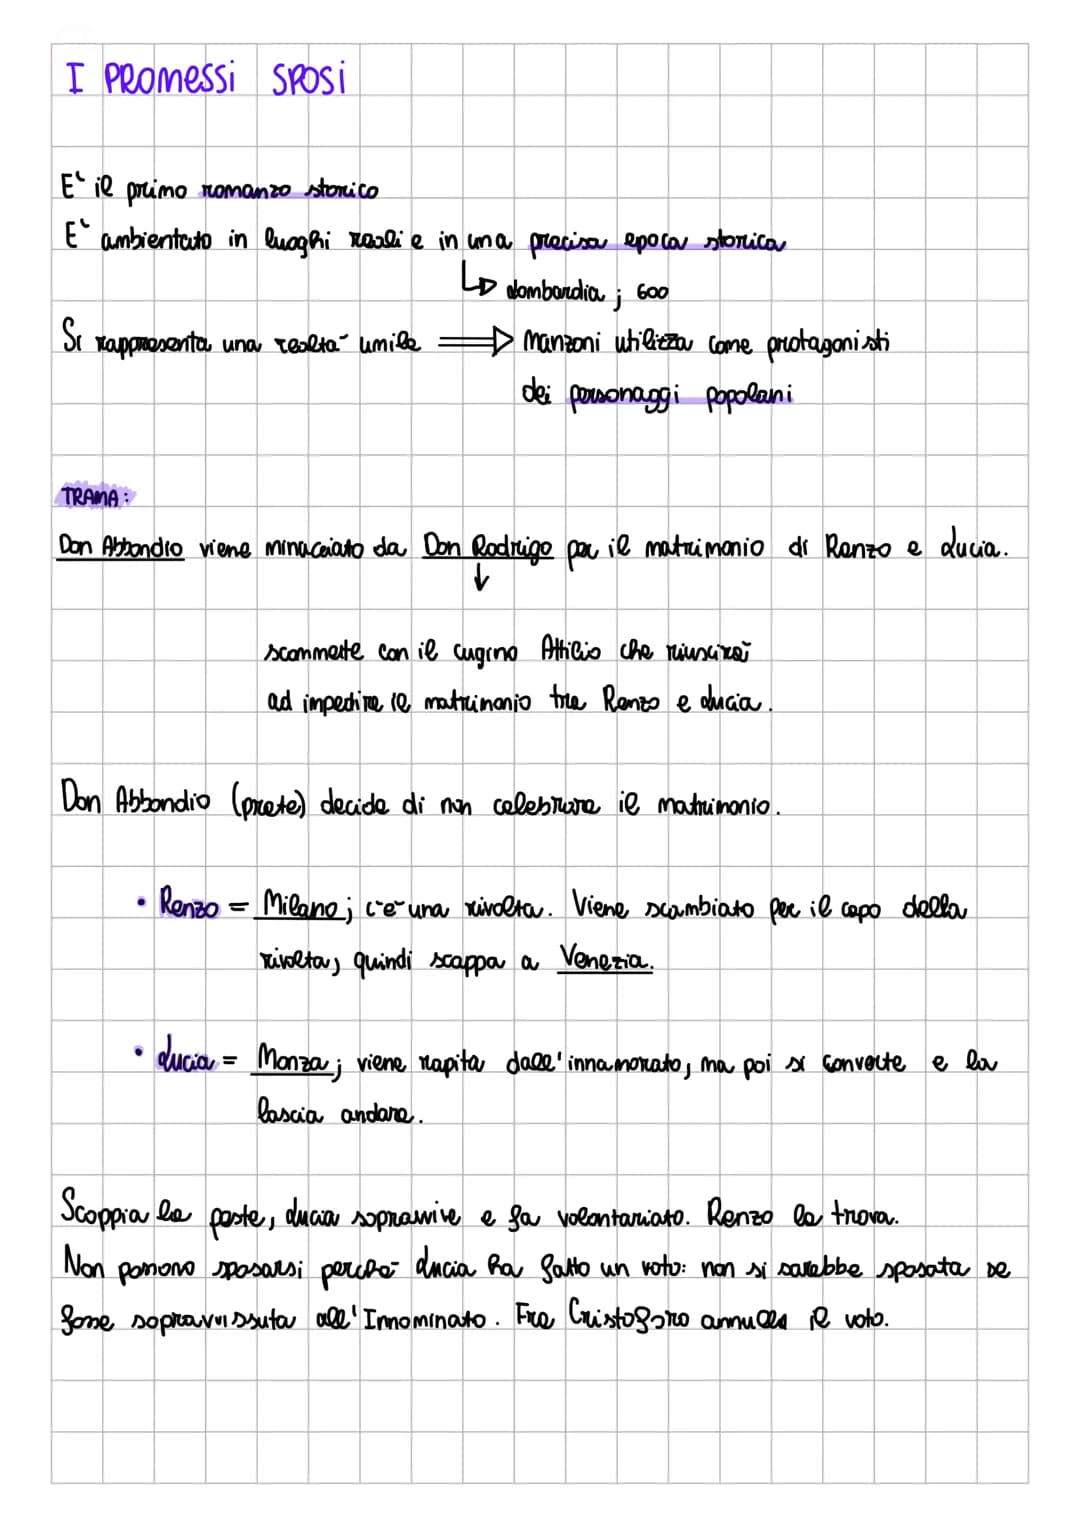 I PROMESSI SPOSI
E' il primo romanzo storico
E' ambientato in luoghi reali e in una precisa epoca storica
Lombardia; 600
Si rappresenta una realtà umile ⇒ Manzoni utilizza come protagonisti
dei personaggi popolani
TRAMA:
Don Abbondio viene minacciato da Don Rodrigo per il matrimonio di Renzo e Lucia.
scommette con il cugino Attilio che riuscirà
ad impedire il matrimonio tra Renzo e Lucia.
Don Abbondio (prete) decide di non celebrare il matrimonio.
• Renzo = Milano; c'è una rivolta. Viene scambiato per il capo della
rivolta, quindi scappa a Venezia.
• Lucia = Monza; viene rapita dall'innamorato, ma poi si converte e la
lascia andare.
Scoppia la peste, Lucia sopravvive e fa volontariato. Renzo la trova.
Non possono sposarsi perchè Lucia ha fatto un voto: non si sarebbe sposata se
fosse sopravvissuta all'Innominato. Fra Cristoforo annulla il voto.